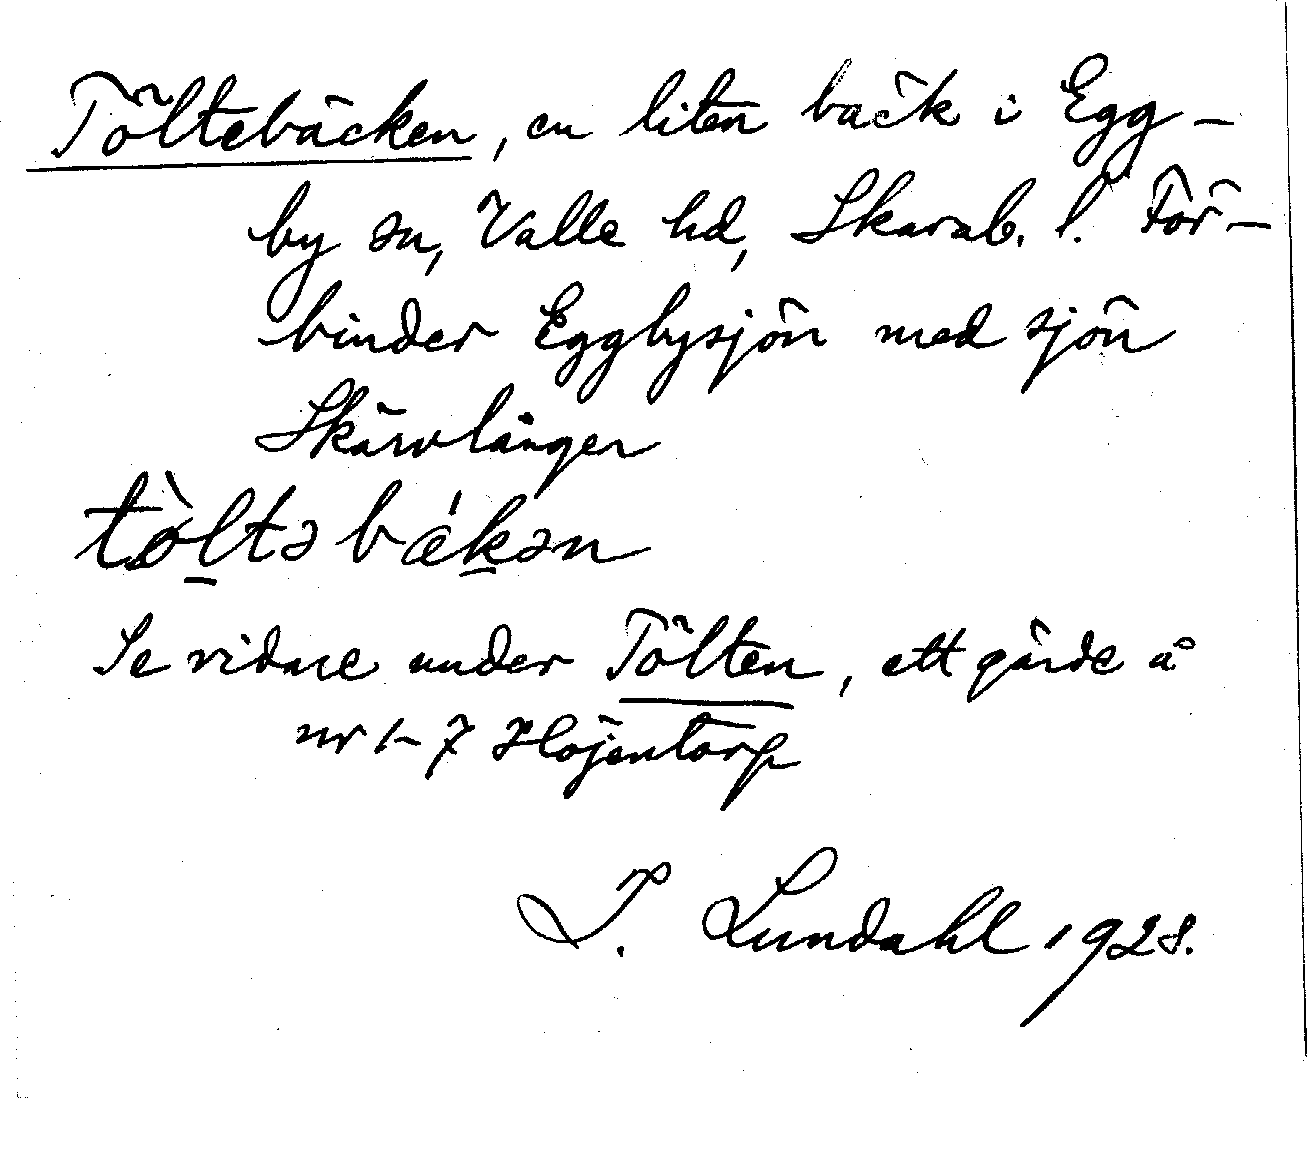 Töltebäcken, en liten bäck i Egg-
by sn, Valle hd, Skarab. l. För-
binder Eggbysjön med sjön
Skärvlången
tò̱ltəbǽḵən
Se vidare under Tölten, ett gärde å
nr 1-7 Höjentorp
I. Lundahl 1928.